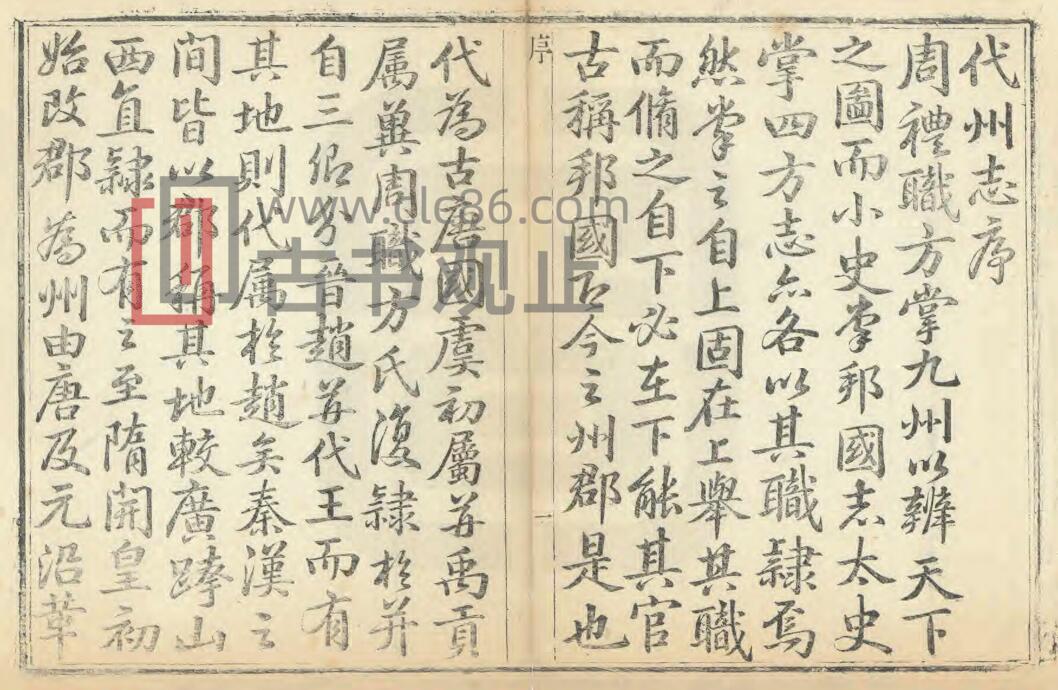 代州志序
周禮職方掌九州以辨天下
之圖而小史掌邦國志太史
掌四方志亦各以其職隸焉
然掌之自上固在上舉其職
而脩之自下必在下能其官
古稱邦國即今之州郡是也
序
一
代為古唐國虞初屬并禹貢
属冀周職方氏復隸於并
自三卿分晉趙并代王而有
其地則代属於趙矣秦漢之
間皆以郡稱其地較廣跨山
西直隸而有之至隋開皇初
始改郡為州由唐及元沿革
www.dle86.com
古书观止